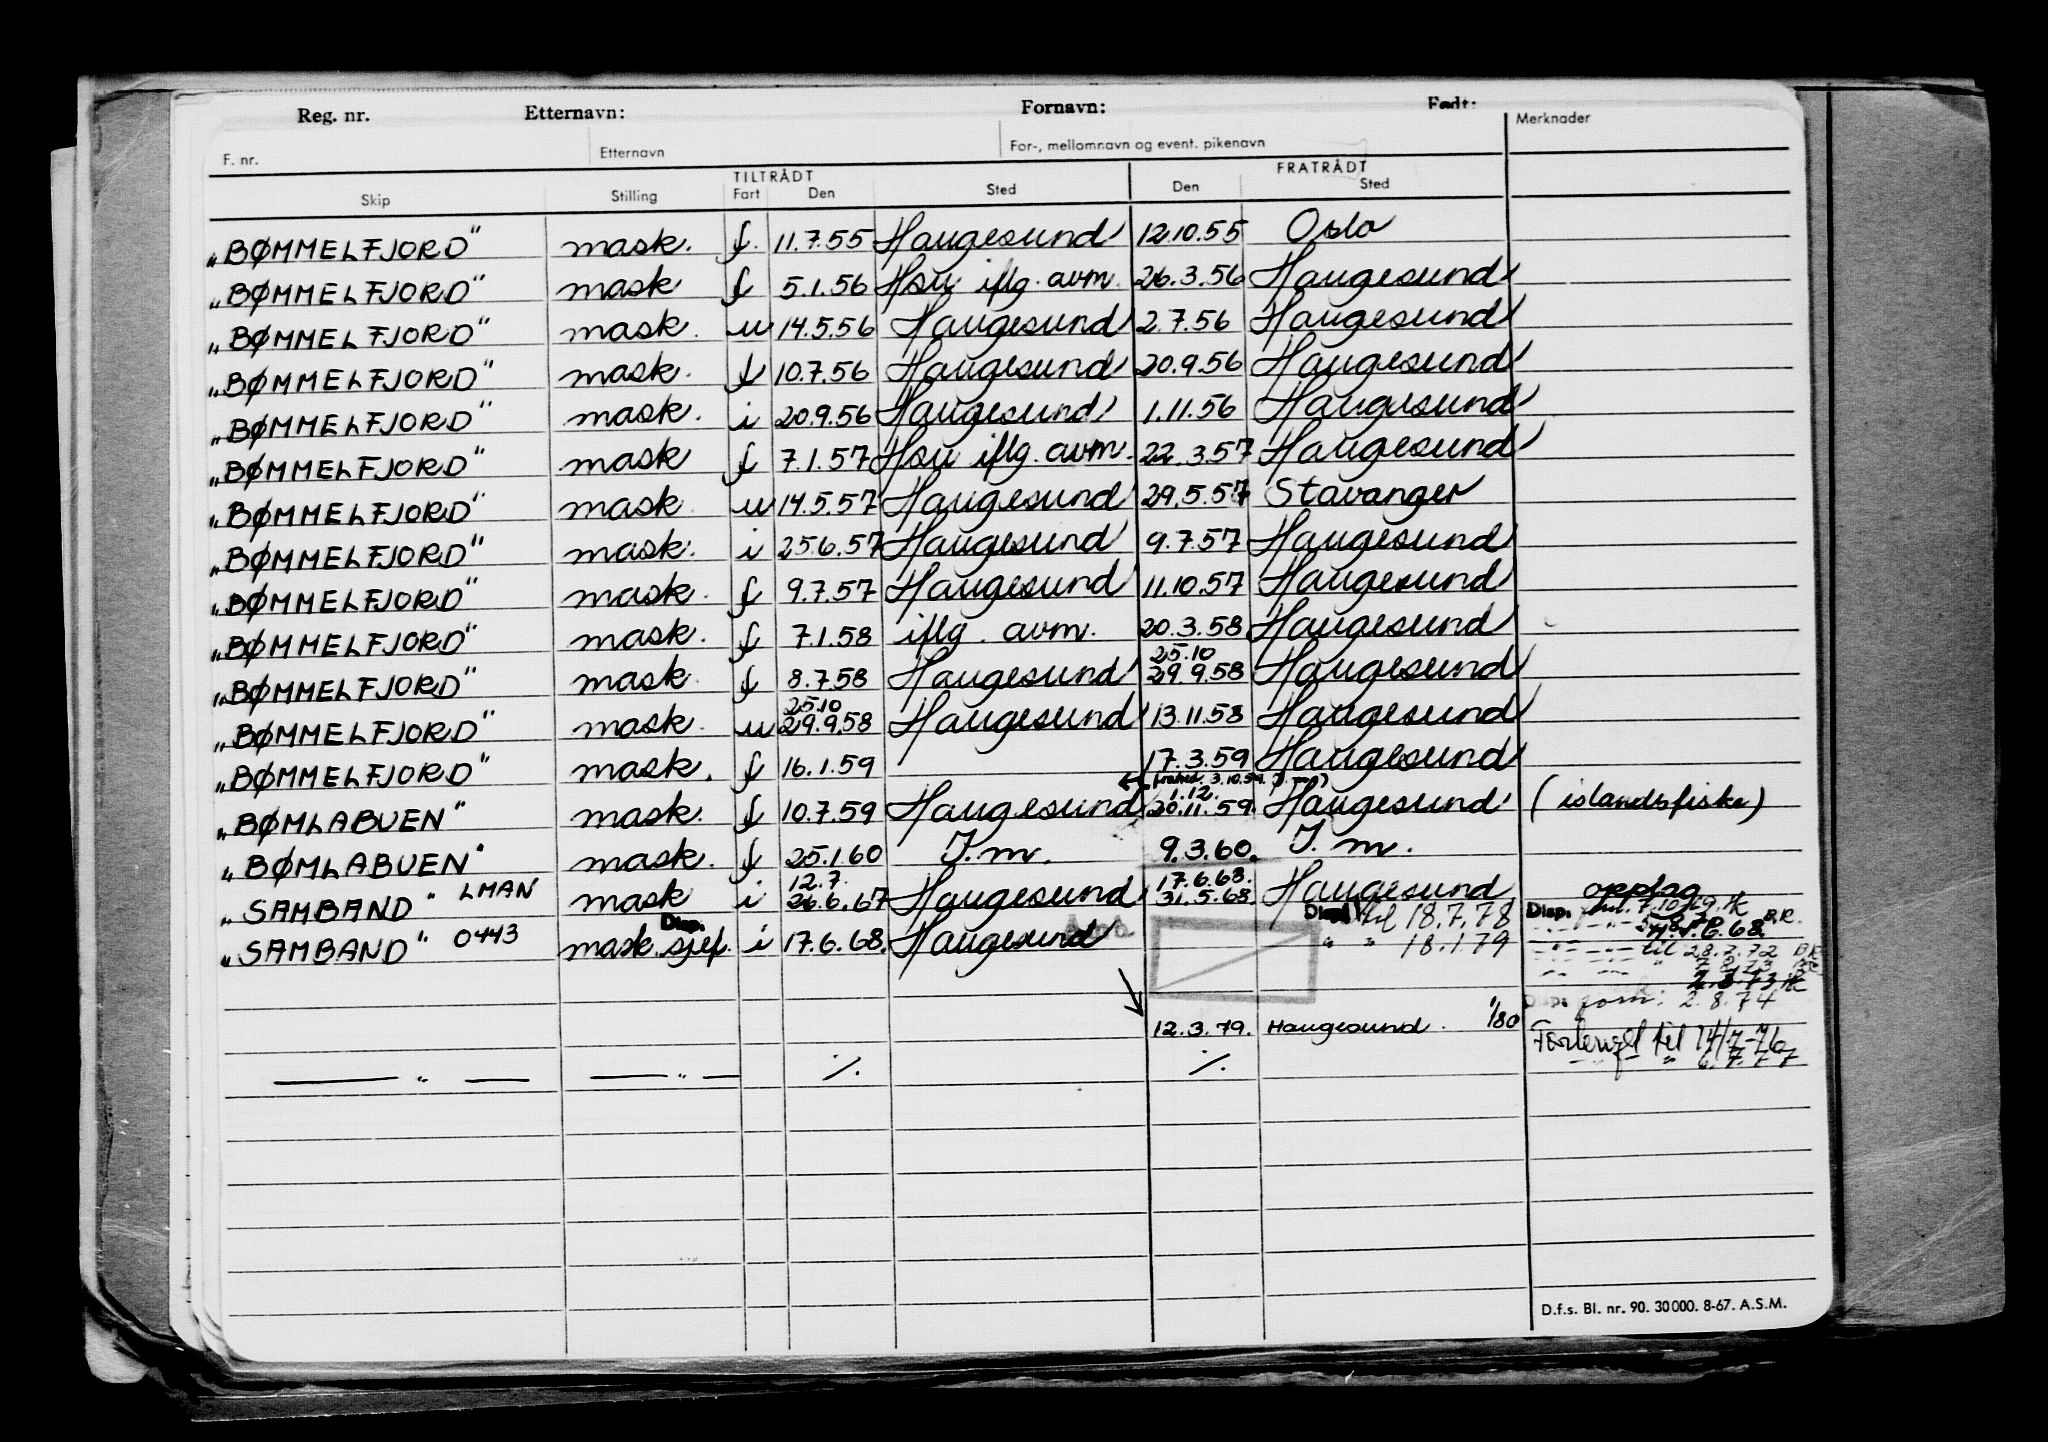 Reg. nr. Etternavn: Fornavn: Født:
F. nr. Etternavn For-, mellomnavn og event. pikenavn Merknader
TILTRÅDT FRATRÅDT
Skip Stilling Fart Den Sted Den Sted
„BØMMELFJORD" mask. f. 11.7.55 Haugesund 12.10.55 Oslo
„BØMMELFJORD" mask f 5.1.56 Hsu iflg. avm. 26.3.56 Haugesund
„BØMMELFJORD" mask. u 14.5.56 Haugesund 2.7.56 Haugesund
„BØMMELFJORD" mask. f 10.7.56 Haugesund 20.9.56 Haugesund
„BØMMELFJORD" mask. i 20.9.56 Haugesund 1.11.56 Haugesund
„BØMMELFJORD" mask f 7.1.57 Hsu iflg. avm. 22.3.57 Haugesund
„BØMMELFJORD" mask u 14.5.57 Haugesund 29.5.57 Stavanger
„BØMMELFJORD" mask. i 25.6.57 Haugesund 9.7.57 Haugesund
„BØMMELFJORD" mask. f 9.7.57 Haugesund 11.10.57 Haugesund
„BØMMELFJORD" mask. f 7.1.58 iflg. avm. 20.3.58 Haugesund
25.10
„BØMMELFJORD" mask f 8.7.58 Haugesund 29.9.58 Haugesund
25.10
„BØMMELFJORD" mask. u 29.9.58 Haugesund 13.11.58 Haugesund
„BØMMELFJORD" mask. f 16.1.59 17.3.59 Haugesund
1.12.
„BØMLABUEN" mask. f 10.7.59 Haugesund 30.11.59. Haugesund (islandsfiske)
„BØMLABUEN" mask. f 25.1.60 I. m. 9.3.60. I. m.
12.7. 17.6.68.
„SAMBAND" LMAN mask i 26.6.67 Haugesund 31.5.68. Haugesund oppdag
Disp. Disp. til 18.7.78 Disp. til 7.10.69. HK
„SAMBAND" 0443 mask.sjef. i 17.6.68. Haugesund " " 18.1.79
til 28.7.72
2.8.73 HK
Disp. fom: 2.8.74
12.3.79. Haugesund. 1/80
Forlenget til 14/7-76
" 6.7.77
— „ — — „ — ·/. ·/.
D.f.s. Bl. nr. 90. 30000. 8-67. A.S.M.